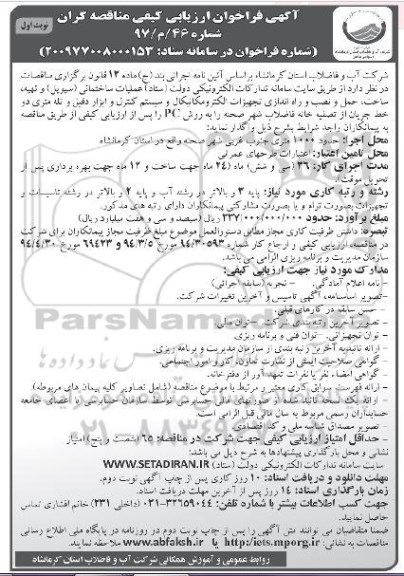 آگهی فراخوان ارزیابی کیفی مناقصه گران
شماره ۴۶/م/۹۷
نوبت اول
(شماره فراخوان در سامانه ستاد: ۲۰۰۹۷۷۰۰۸۰۰۰۱۵۳)
شرکت آب و فاضلاب استان کرمانشاه براساس آئین نامه اجرایی بند (ج) ماده ۱۲ قانون برگزاری مناقصات
در نظر دارد از طریق سایت سامانه تدارکات الکترونیکی دولت (ستاد) عملیات ساختمانی (سیویل) و تهیه،
ساخت، حمل و نصب و راه اندازی تجهیزات الکترومکانیکال و سیستم کنترل و ابزار دقیق و تله متری دو
خط جریان از تصفیه خانه فاضلاب شهر صحنه را به روش PC را پس از ارزیابی کیفی از طریق مناقصه
به پیمانکاران واجد شرایط بشرح ذیل واگذار نماید:
محل اجرا: حدود ۱۰۰۰ متری جنوب غربی شهر صحنه واقع در استان کرمانشاه
محل تامین اعتبار: اعتبارات طرحهای عمرانی
مدت اجرای کار: ۳۶ (سی و شش) ماه (۲۴ ماه جهت ساخت و ۱۲ ماه جهت بهره برداری پس از
تحویل موقت)
رشته و رتبه کاری مورد نیاز: پایه ۳ و بالاتر در رشته آب و پایه ۲ و بالاتر در رشته تاسیسات و
تجهیزات بصورت توام و یا بصورت مشارکتی پیمانکاران دارای رتبه های مذکور
مبلغ برآورد: حدود ۳۳۷/۰۰۰/۰۰۰/۰۰۰ ریال (سیصد و سی و هفت میلیارد ریال)
تبصره: داشتن ظرفیت کاری مجاز مطابق دستورالعمل موضوع مبلغ ظرفیت مجاز پیمانکاران برای شرکت
در مناقصه، ارزیابی کیفی و ارجاع کار شماره ۹۴/۳۰۵۹۳ مورخ ۹۴/۳/۵ و ۶۹۴۲۳ مورخ ۹۴/۴/۳۰
سازمان مدیریت و برنامه ریزی الزامی می باشد.
مدارک مورد نیاز جهت ارزیابی کیفی:
- نامه اعلام آمادگی. - تجربه (سابقه اجرائی)
- تصویر اساسنامه، آگهی تاسیس و آخرین تغییرات شرکت.
- حسن سابقه در کارهای قبلی.
- تصویر آخرین رتبه بندی شرکت - توان مالی.
- توان تجهیزاتی. - توان فنی و برنامه ریزی.
- ارائه تائیدیه آخرین رتبه بندی از سازمان مدیریت و برنامه ریزی.
- گواهی صلاحیت ایمنی از نظارت تعاون، کار و امور اجتماعی.
- گواهی امضاء نفر یا نفرات تعهدآور از دفترخانه.
- ارائه فهرست سوابق کاری معتبر و مرتبط با موضوع مناقصه (شامل تصاویر کلیه پیمان های مربوطه)
- تصویر مصداق شناسه ملی و کد اقتصادی.
- حداقل امتیاز ارزیابی کیفی جهت شرکت در مناقصه: ۶۵ (شصت و پنج) امتیاز
نشانی و محل بارگذاری پیشنهادها به شرح ذیل می باشد:
سایت سامانه تدارکات الکترونیکی دولت (ستاد) WWW.SETADIRAN.IR
مهلت دانلود و دریافت اسناد: ۱۰ روز کاری پس از چاپ آگهی نوبت دوم.
زمان بارگذاری اسناد: ۱۴ روز پس از آخرین مهلت دریافت اسناد.
جهت کسب اطلاعات بیشتر با شماره تلفن: ۳۲۲۵۹۰۴۴-۰۲۱ (داخلی ۲۳۱) خانم افشاری تماس
حاصل نمایید.
ضمنا متقاضیان می توانند متن آگهی را پس از چاپ نوبت دوم در روزنامه در پایگاه ملی اطلاع رسانی
مناقصات به نشانی: http://iets.mporg.ir یا www.abfaksh.ir ملاحظه نمایند.
روابط عمومی و آموزش همگانی شرکت آب و فاضلاب استان کرمانشاه